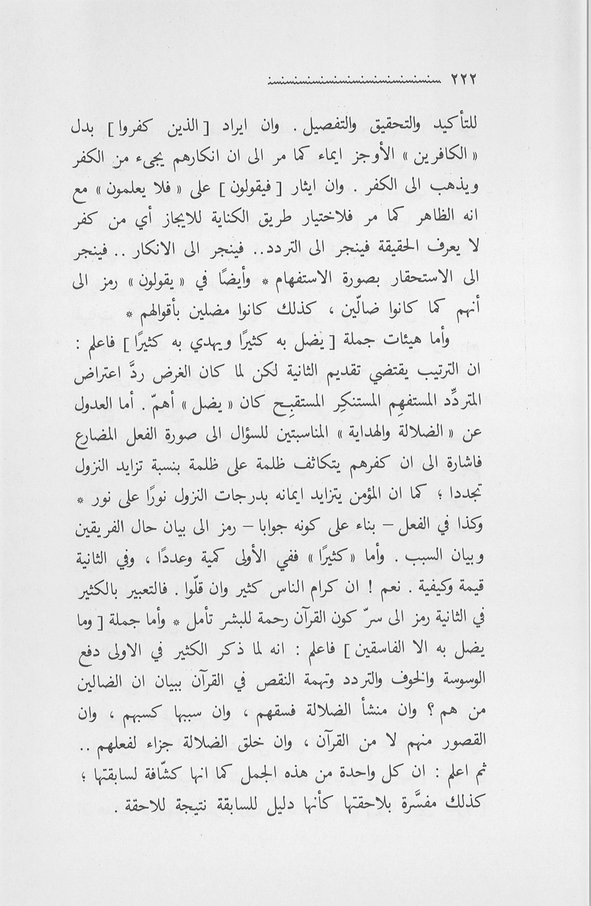 ٢٢٢
للتأكيد والتحقيق والتفصيل . وان ايراد [ الذين كفروا ] بدل
« الكافرين » الأوجز ايماء كما مر الى ان انكارهم يجيء من الكفر
ويذهب الى الكفر . وان ايثار [ فيقولون ] على « فلا يعلمون » مع
انه الظاهر كما مر فلاختيار طريق الكناية للايجاز أي من كفر
لا يعرف الحقيقة فينجر الى التردد.. فينجر الى الانكار .. فينجر
الى الاستحقار بصورة الاستفهام * وأيضًا في « يقولون » رمز الى
أنهم كما كانوا ضالّين ، كذلك كانوا مضلين بأقوالهم *
وأما هيئات جملة [ يُضل به كثيرًا ويهدي به كثيرًا ] فاعلم :
ان الترتيب يقتضي تقديم الثانية لكن لما كان الغرض ردَّ اعتراض
المتردِّد المستفهِم المستنكِر المستقبِح كان « يضل » أهمّ . أما العدول
عن « الضلالة والهداية » المناسبتين للسؤال الى صورة الفعل المضارع
فاشارة الى ان كفرهم يتكاثف ظلمة على ظلمة بنسبة تزايد النزول
تجددا ؛ كما ان المؤمن يتزايد ايمانه بدرجات النزول نورًا على نور *
وكذا في الفعل – بناء على كونه جوابا – رمز الى بيان حال الفريقين
وبيان السبب . وأما « كثيرًا » ففي الأولى كمية وعددًا ، وفي الثانية
قيمة وكيفية . نعم ! ان كرام الناس كثير وان قلّوا . فالتعبير بالكثير
في الثانية رمز الى سرّ كون القرآن رحمة للبشر تأمل * وأما جملة [ وما
يضل به الا الفاسقين ] فاعلم : انه لما ذكر الكثير في الاولى دفع
الوسوسة والخوف والتردد وتهمة النقص في القرآن ببيان ان الضالين
من هم ؟ وان منشأ الضلالة فسقهم ، وان سببها كسبهم ، وان
القصور منهم لا من القرآن ، وان خلق الضلالة جزاء لفعلهم ..
ثم اعلم : ان كل واحدة من هذه الجمل كما انها كشّافة لسابقتها ؛
كذلك مفسَّرة بلاحقتها كأنها دليل للسابقة نتيجة للاحقة .